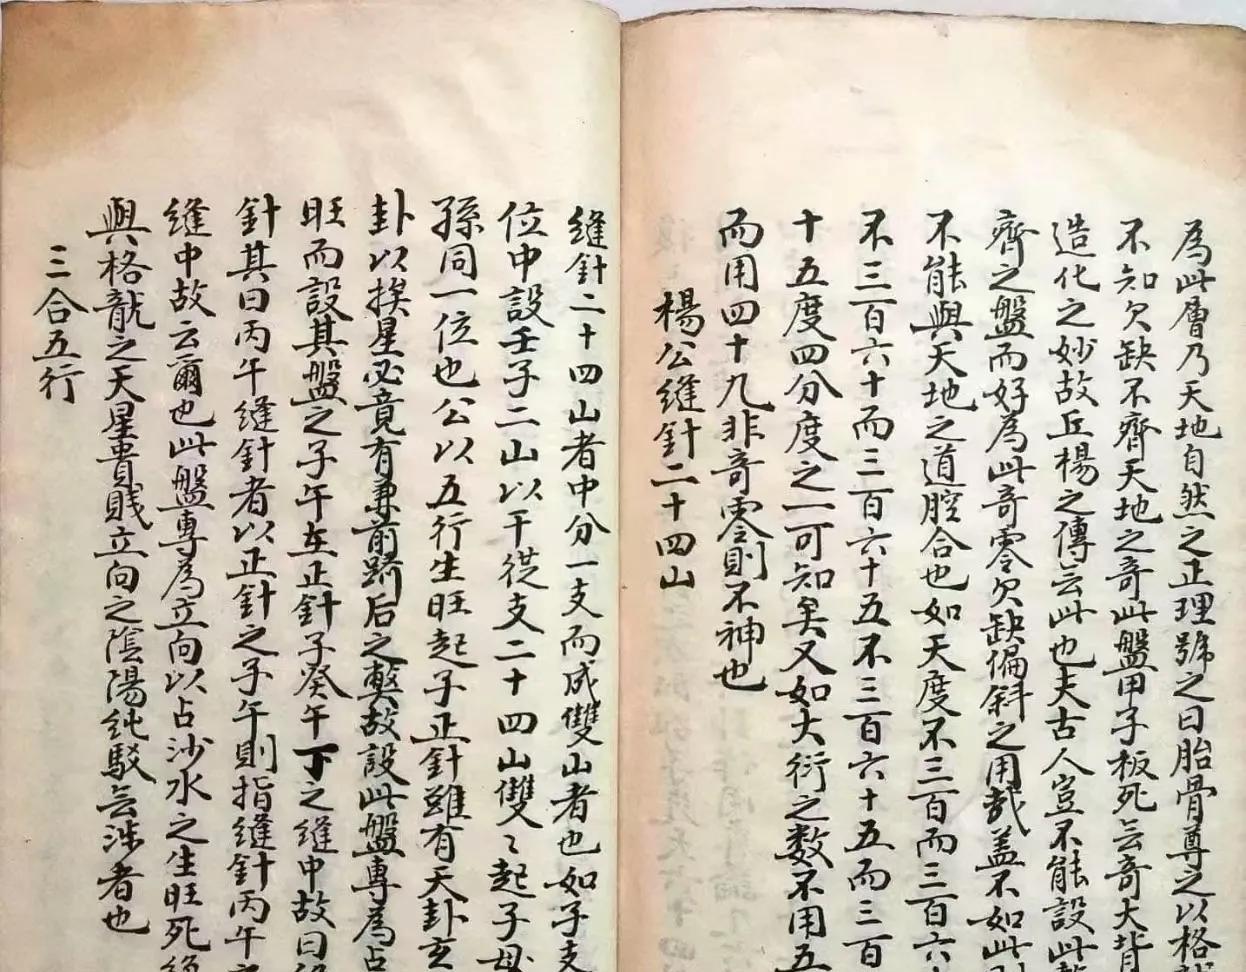 為此層乃天地自然之正理號之曰胎骨尊之以格
不知欠缺不齊天地之奇此盤甲子板死亖奇大背
造化之妙故丘楊之傳亖此也夫古人豈不能設此
齊之盤而好為此奇零欠缺偏斜之用哉盖不如此
不能與天地之道腔合也如天度不三百而三百六
不三百六十而三百六十五不三百六十五而三百
十五度四分度之一可知矣又如大衍之数不用五
而用四十九非奇零則不神也
楊公縫針二十四山
縫針二十四山者中分一支而成雙山者也如子支
位中設壬子二山以干從支二十四山雙〻起子母
孫同一位也公以五行生旺起子正針雖有天卦玄
卦以挨星必竟有兼前躋后之弊故設此盤專為占
旺而設其盤之子午在正針子癸午丁之縫中故曰
針其曰丙午縫針者以正針之子午則指縫針丙午
縫中故云爾也此盤專為立向以占沙水之生旺死
與格龍之天星貴賎立向之陰陽純駁亖涉者也
三合五行